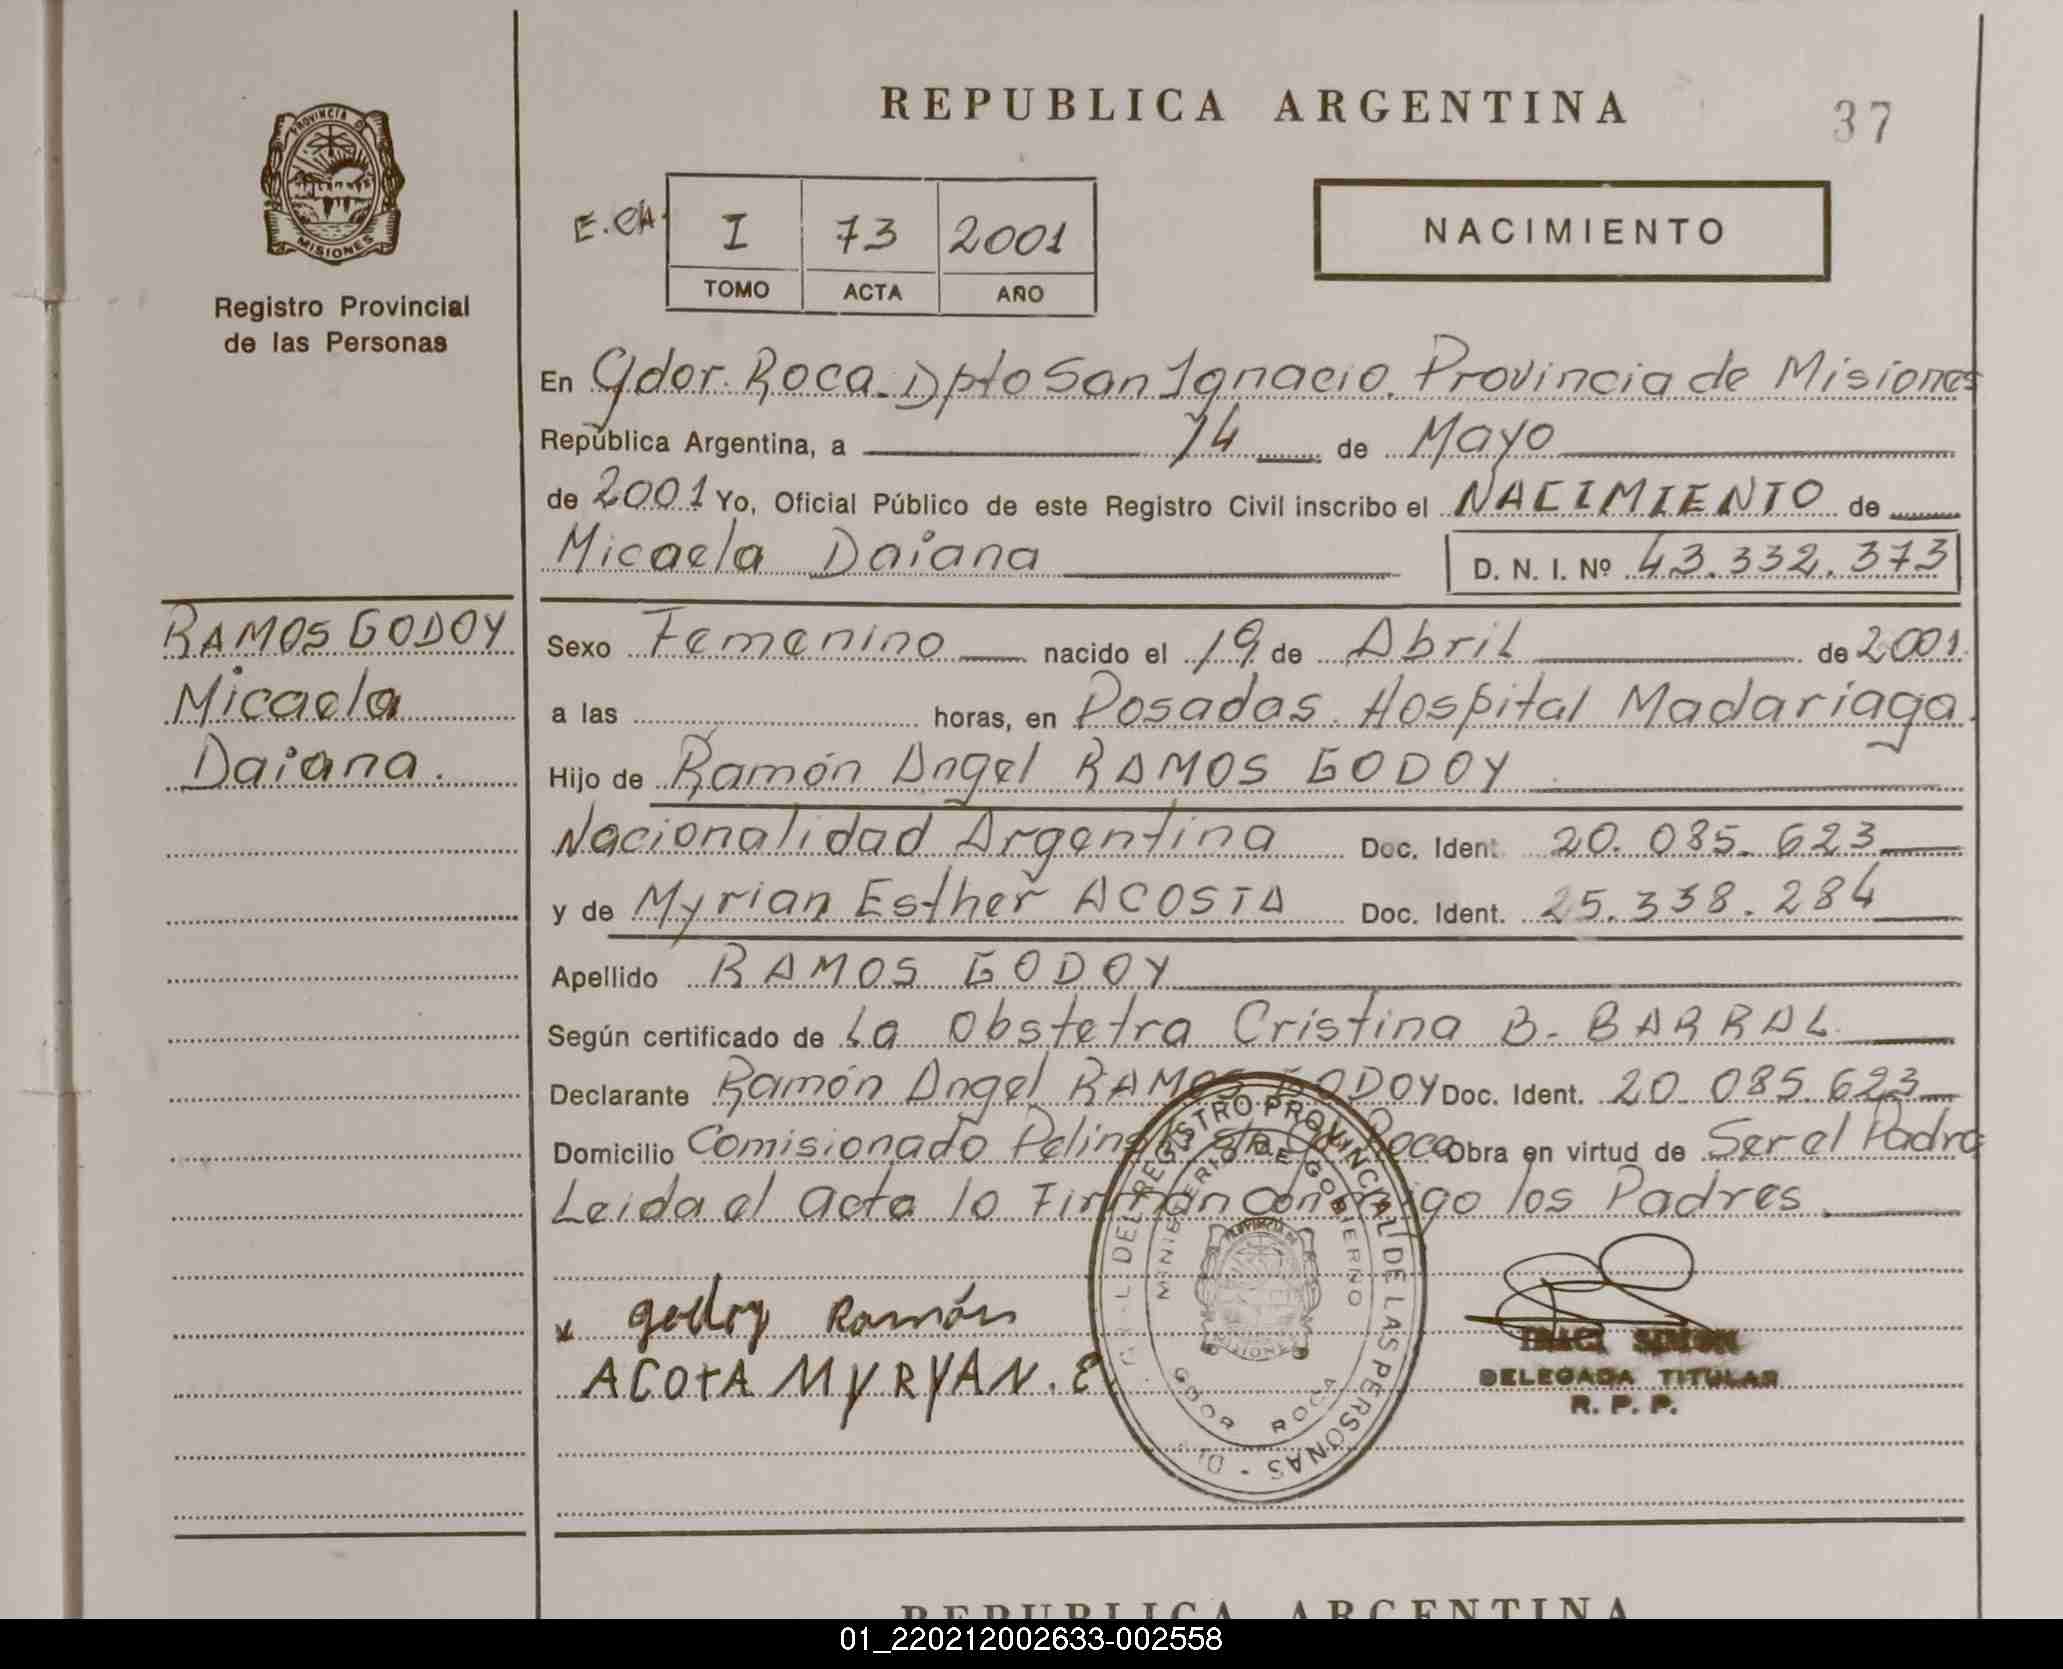 REPUBLICA ARGENTINA
37
PROVINCIA D
MISIONES
Registro Provincial
de las Personas
E.CH.
I 73 2001
TOMO ACTA AÑO
NACIMIENTO
En Gdor. Roca. Dpto San Ignacio. Provincia de Misiones
República Argentina, a 14 de Mayo
de 2001 Yo, Oficial Público de este Registro Civil inscribo el NACIMIENTO de
Micaela Daiana D. N. I. Nº 43.332.373
RAMOS GODOY
Micaela
Daiana.
Sexo Femenino nacido el 19 de Abril de 2001.
a las horas, en Posadas. Hospital Madariaga.
Hijo de Ramón Angel RAMOS GODOY
Nacionalidad Argentina Doc. Ident. 20.085.623
y de Myrian Esther ACOSTA Doc. Ident. 25.338.284
Apellido RAMOS GODOY
Según certificado de La Obstetra Cristina B. BARRAL
Declarante Ramón Angel RAMOS GODOY Doc. Ident. 20.085.623
Domicilio Comisionado Roca Obra en virtud de Ser el Padre
Leida el acta lo Firman conmigo los Padres
Godoy Ramón
ACOTA MYRYAN. E
DEL REGISTRO PROVINCIAL DE LAS PERSONAS
MINISTERIO DE GOBIERNO
GDOR ROCA
SIMON
DELEGADA TITULAR
R. P. P.
REPUBLICA ARGENTINA
01_220212002633-002558